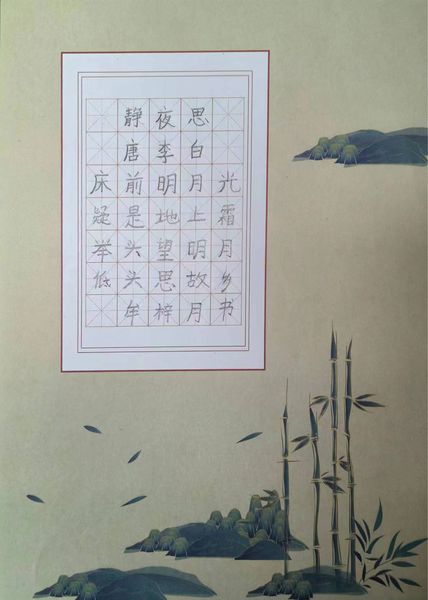 静夜思
唐李白
床前明月光
疑是地上霜
举头望明月
低头思故乡
牟梓月书